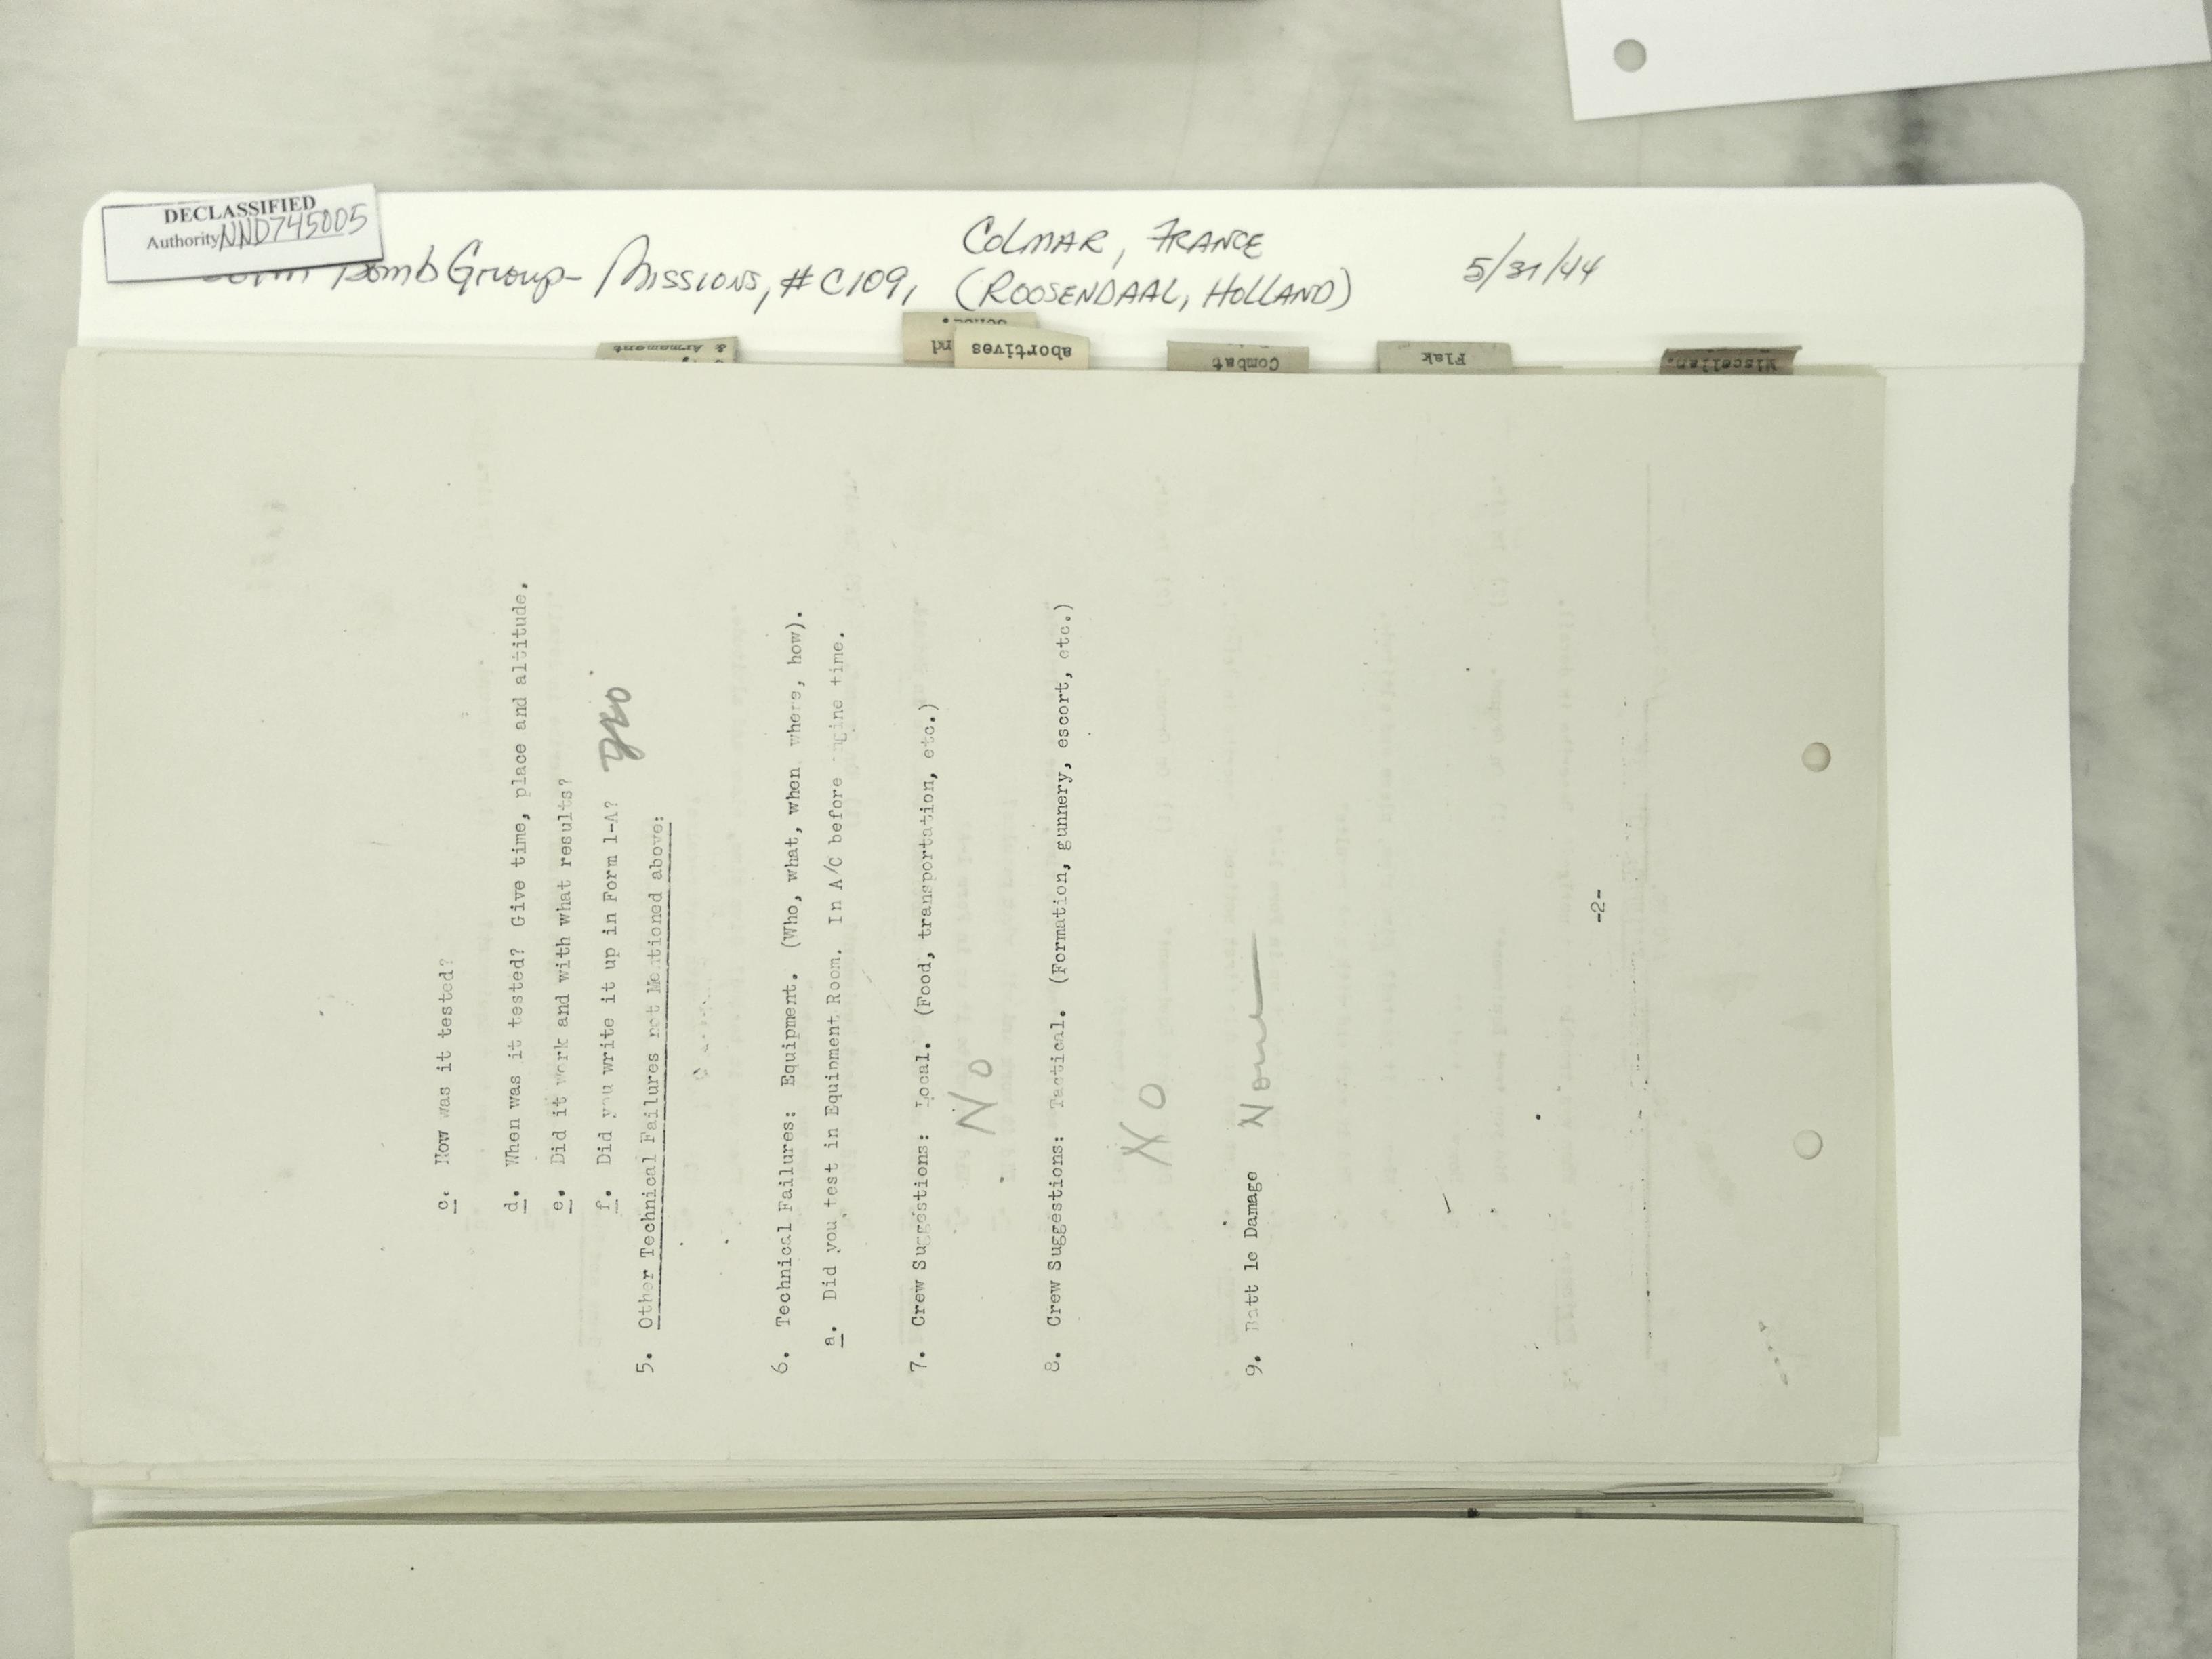 DECLASSIFIED
Authority NND745005
Bomb Group - Missions, #C109,
COLMAR, FRANCE
(ROOSENDAAL, HOLLAND)
5/31/44
& Armament
abortives
Combat
Flak
Miscellan.
c. How was it tested?
d. When was it tested? Give time, place and altitude,
e. Did it work and with what results?
f. Did you write it up in Form 1-A?
5. Other Technical Failures not Mentioned above:
6. Technical Failures: Equipment. (Who, what, when where, how).
a. Did you test in Equipment Room. In A/C before engine time.
7. Crew Suggestions: Local. (Food, transportation, etc.)
No
8. Crew Suggestions: Tactical. (Formation, gunnery, escort, etc.)
No
9. Batt le Damage None
-2-